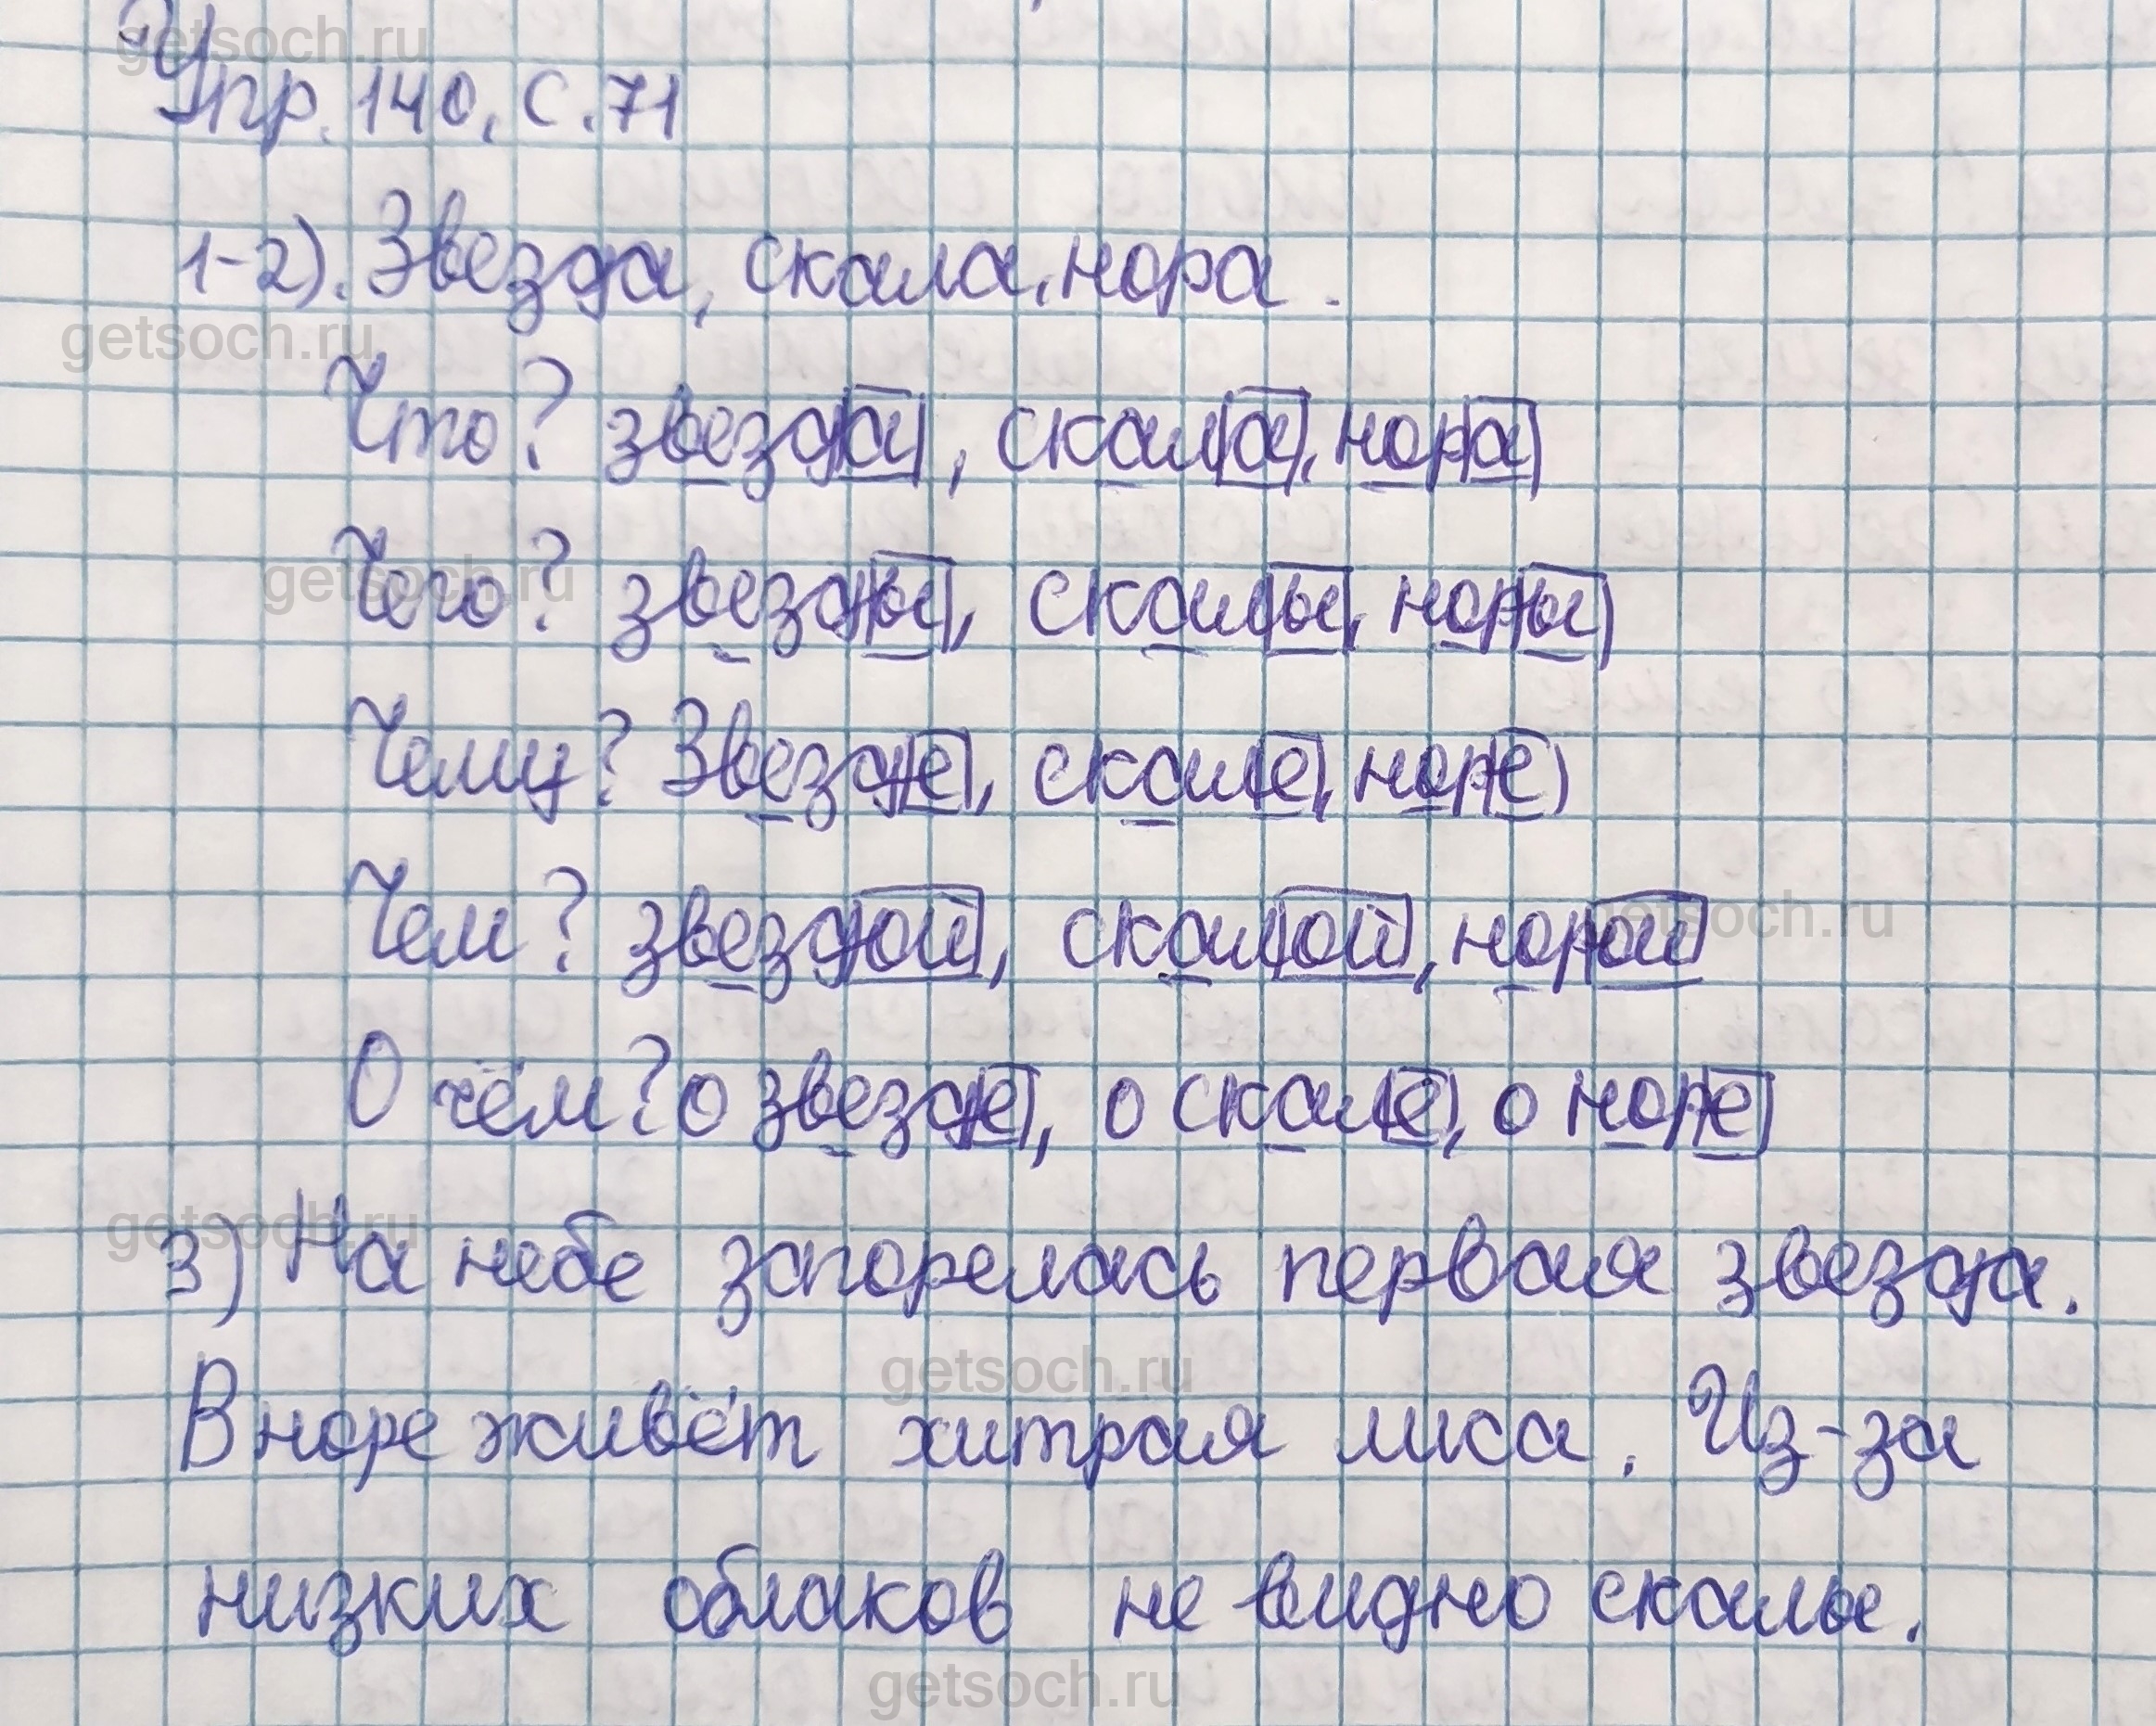 getsoch.ru
Упр. 140, с. 71
1-2). Звезда, скала, нора.
getsoch.ru
Что? звезда, скала, нора
getsoch.ru
Чего? звезды, скалы, норы
Чему? Звезде, скале, норе
getsoch.ru
Чем? звездой, скалой, норой
О чём? о звезде, о скале, о норе
getsoch.ru
3) На небе загорелась первая звезда.
getsoch.ru
В норе живёт хитрая лиса. Из-за
низких облаков не видно скалы.
getsoch.ru